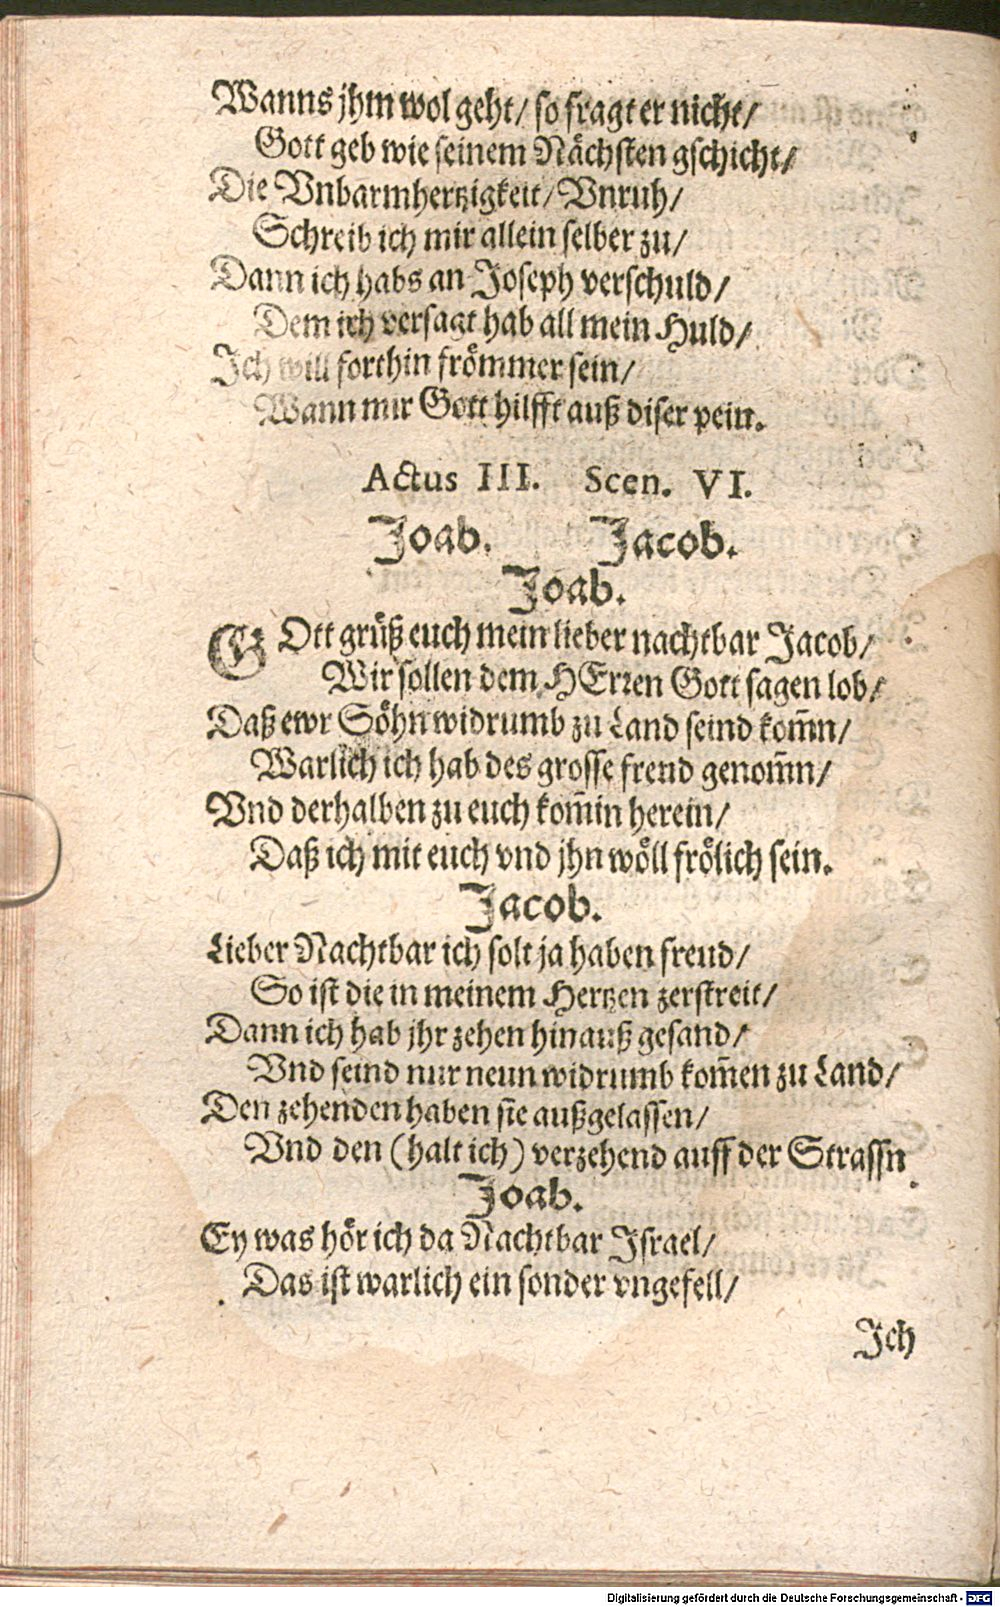 Wanns jhm wol geht/ so fragt er nicht/
Gott geb wie seinem Nächsten gschicht/
Die Vnbarmhertzigkeit/ Vnruh/
Schreib ich mir allein selber zu/
Dann ich habs an Joseph verschuld/
Dem ich versagt hab all mein Huld/
Ich will forthin frömmer sein/
Wann mir Gott hilfft auß diser pein.
Actus III. Scen. VI.
Joab. Jacob.
Joab.
GOtt grüß euch mein lieber nachtbar Jacob/
Wir sollen dem HErren Gott sagen lob/
Daß ewr Söhn widrumb zu Land seind kom̃n/
Warlich ich hab des grosse frend genom̃n/
Vnd derhalben zu euch kom̃in herein/
Daß ich mit euch vnd jhn wöll frölich sein.
Jacob.
Lieber Nachtbar ich solt ja haben freud/
So ist die in meinem Hertzen zerstreit/
Dann ich hab jhr zehen hinauß gesand/
Vnd seind nur neun widrumb kom̃en zu Land/
Den zehenden haben sie außgelassen/
Vnd den (halt ich) verzehend auff der Strassn.
Joab.
Ey was hör ich da Nachtbar Israel/
Das ist warlich ein sonder vngefell/
Ich
Digitalisierung gefördert durch die Deutsche Forschungsgemeinschaft - DFG